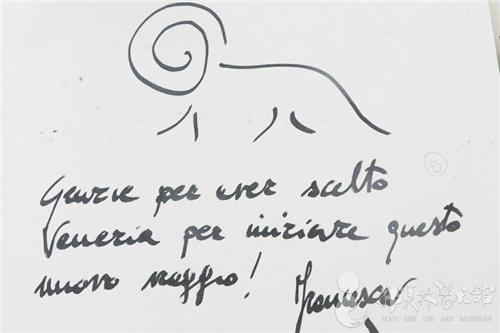 Grazie per aver scelto
Venezia per iniziare questo
nuovo viaggio!
Francesca
韩美林艺术馆
HAN MEI LIN ART MUSEUM